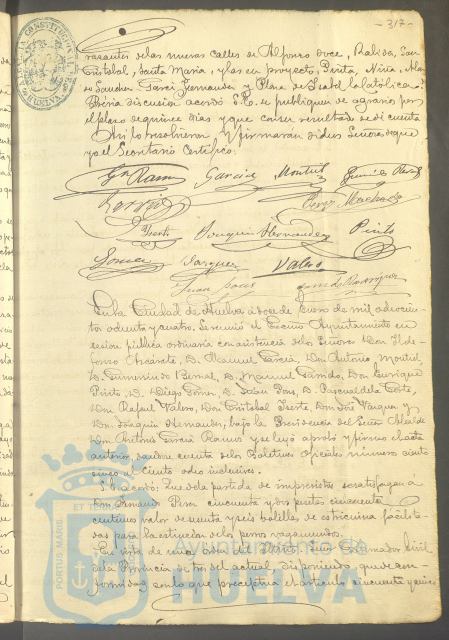 - 317 -
rasantes de las nuevas calles de Alfonso doce, Rabida, San
Cristobal, Santa Maria, y las en proyecto, Pinta, Niña, Alon
so Sanchez, Garci Fernandez y Plaza de Isabel la Católica.
Prévia discusion acordó S.E. se publiquen
el plazo de quince dias y que con su resultado se dé cuenta
Asi lo resolvieron y firmarán dichos Señores de que
yo el Secretario Certifico.
Ga Ramos Garcia Montiel
Perez Machado
Iserte Joaquin Hernandez Pinto
Vazquez Valero
Juan
En la Ciudad de Huelva á doce de Enero de mil ochocien
tos ochenta y cuatro. Se reunió el Excmo Ayuntamiento en
sesion pública ordinaria con asistencia de los Señores Don Ilde
fonso Alcarate, D. Manuel Garcia, Don Antonio Montiel
D. Gumersindo Bernal, D. Manuel Garrido, Don Enrique
Pinto, D. Diego D. Pascual de la Corte,
Don Rafael Valero, Don Cristobal Iserte, Don José Vazquez y
Don Joaquin Hernandez, bajo la Presidencia del Señor Alcalde
Don Antonio Garcia Ramos y se leyó aprobó y firmó el acta
anterior, se dió cuenta de los Boletines Oficiales numero ciento
cinco al ciento ocho inclusives.
Se acordó: Que de la partida de imprevistos se satisfagan á
Don Fernando cincuenta y dos pesetas cincuenta
centimos valor de sesenta y seis bolillas de estricnina facilita
das para la estincion de los perros vagamundos.
En vista de una orden del Señor Gobernador Civil
de la Provincia de tres del actual, disponiendo, que de con
formidad con lo que preceptúa el articulo cincuenta y cinco
PORTUS MARIS ET TERRAE
Ayuntamiento de
HUELVA